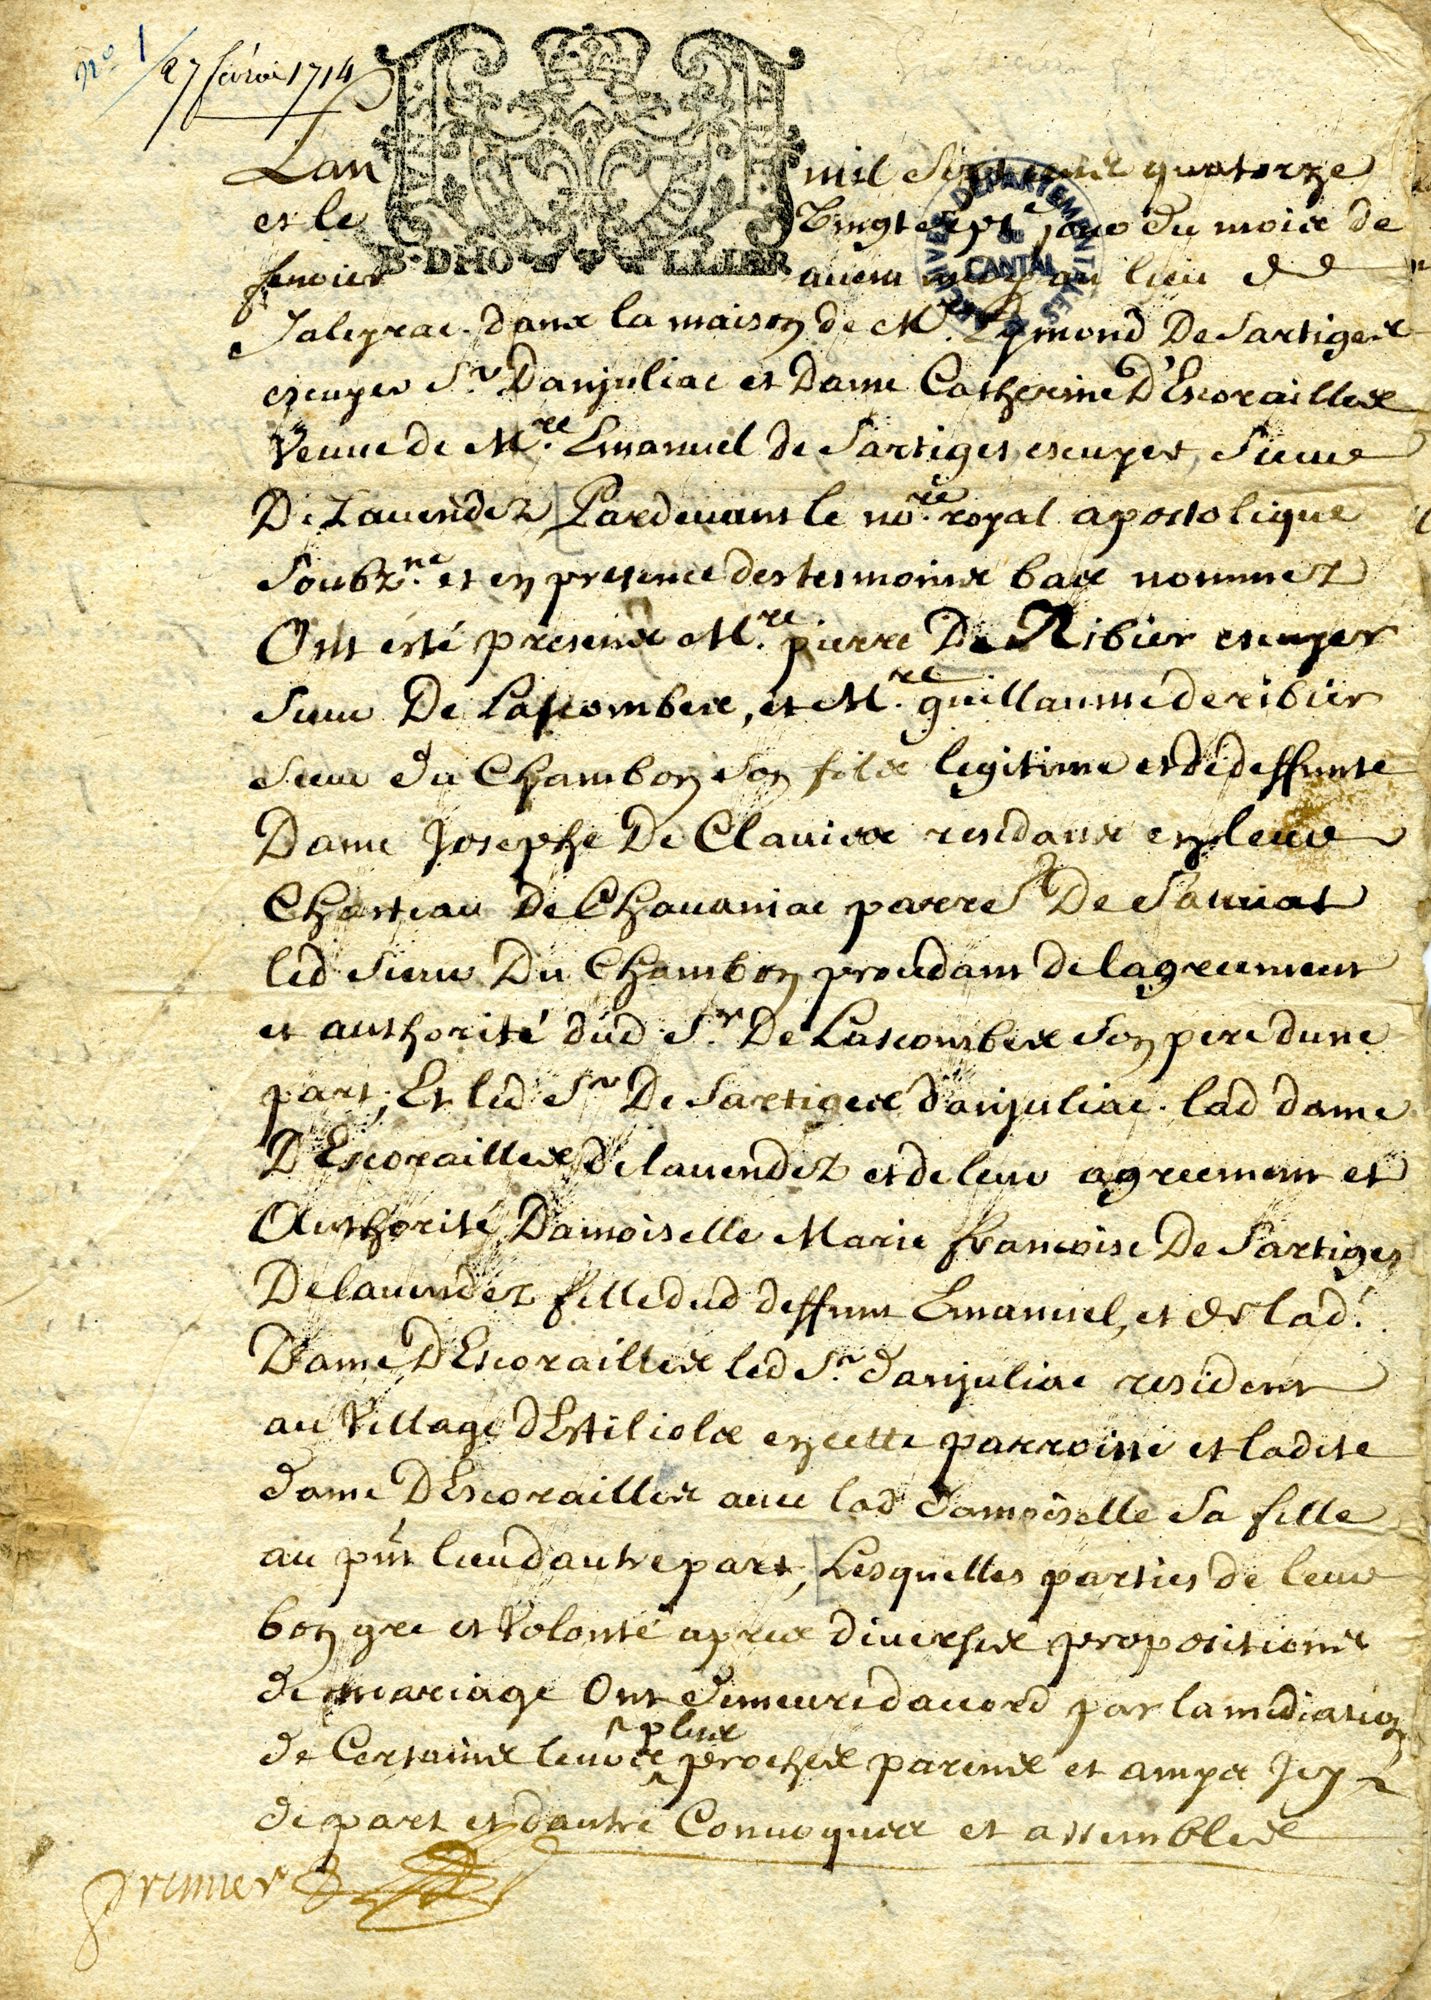 n.º 1
27 février 1714
B-DHO LLIER
ARCHIVES DÉPARTEMENTALES
DU
CANTAL
Lan mil sept cens quatorze
et le Vingt sept.e jour du mois de
fevrier avant midy au lieu de
Jaleyrac. dans la maison de M.re Eymond De Sartiges
escuyer S.r Danjuliac et Dame Catherine D'Escorailles
Veuue de M.re Emanuel de Sartiges, escuyer, Sieur
De Lauendez Pardeuant le no.re royal apostolique
Soubz.ne et en presence des tesmoins bas nommez
Ont esté presens M.re pierre De Ribier escuyer
Sieur De Lascombes, et M.re guillaume de ribier
Sieur du Chambon son fils legitime et de deffunte
Dame Josephe De Clauiers residans en leur
Chasteau De Chauaniac parr.e De Sauuat
led sieur Du Chambon procedant de lagreement
et authorité dud S.r De Lascombes son pere dune
part, Et led S.r De Sartiges danjuliac. lad dame
D Escorailles De lauendez et de leur agreement et
Authorité Damoiselle Marie francoise De Sartiges
De lauendez fille dud deffunt Emanuel, et de lad.
Dame D Escorailles led S.r danjuliac resident
au Village d Estiliols en cette parroisse et ladite
dame D Escorailles auec lad damoiselle sa fille
au pnt lieu dautre part, Lesquelles parties de leur
bon gre et Volonté apres diuerses propositions
de mariage Ont demeure daccord par la mediation
de Certains leurs plus proches parens et amys Icy
de part et dautre Conuoques et assembles
premier